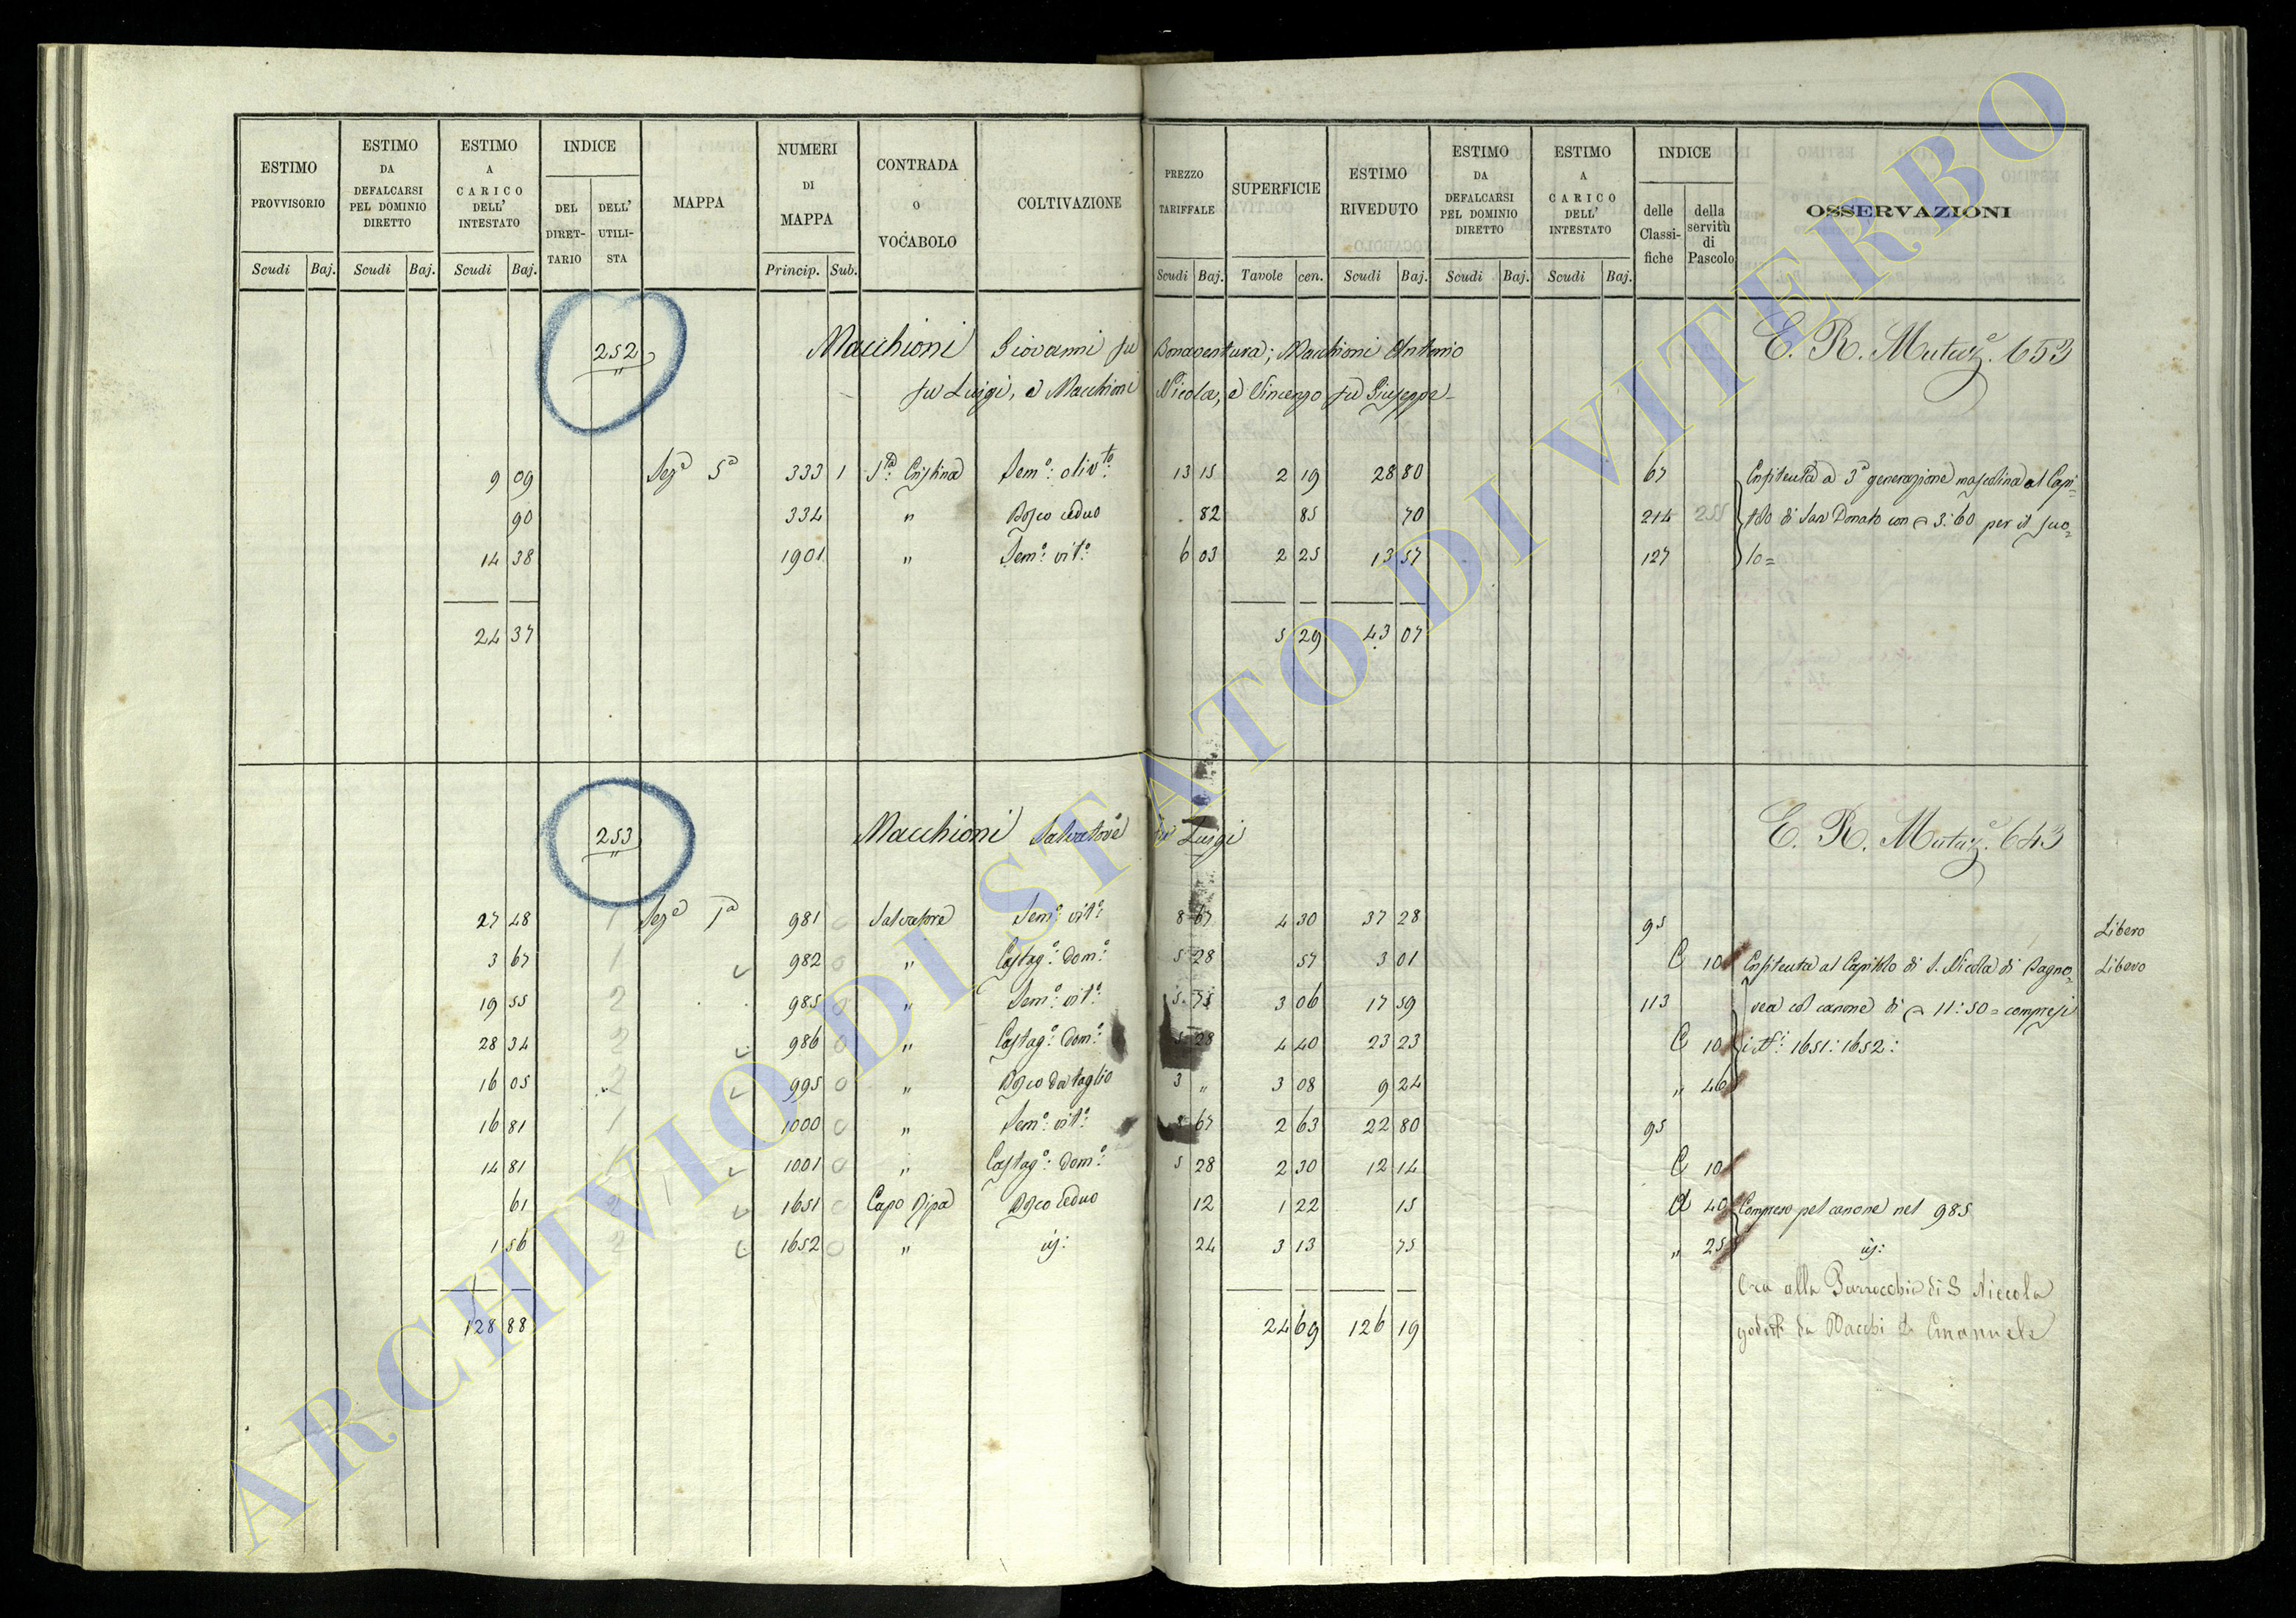 ESTIMO PROVVISORIO Scudi Baj. ESTIMO DA DEFALCARSI PEL DOMINIO DIRETTO Scudi Baj. ESTIMO A CARICO DELL' INTESTATO Scudi Baj. INDICE DEL DIRET- TARIO DELL' UTILI- STA MAPPA NUMERI DI MAPPA Princip. Sub. CONTRADA o VOCABOLO COLTIVAZIONE PREZZO TARIFFALE Scudi Baj. SUPERFICIE Tavole cen. ESTIMO RIVEDUTO Scudi Baj. ESTIMO DA DEFALCARSI PEL DOMINIO DIRETTO Scudi Baj. ESTIMO A CARICO DELL' INTESTATO Scudi Baj. INDICE delle Classi- fiche della servitù di Pascolo OSSERVAZIONI
252 Macchioni Giovanni fu Bonaventura; Macchioni Antonio E. R. Mutaz.e 653
fu Luigi, e Macchioni Nicola, e Vincenzo fu Giuseppe
9 09 Sez.a 5a 333 1 S.ta Cristina Sem.o: oliv.to 13 15 2 19 28 80 67 Enfiteuta a 3a generazione mascolina al Capi=
90 334 " Bosco ceduo 82 85 70 214 255 tolo di San Donato con 3:60 per il suo=
14 38 1901 " Sem.o: vit.o 6 03 2 25 13 57 127 lo=
24 37 5 29 43 07
253 Macchioni Salvatore fu Luigi E. R. Mutaz.e 643
27 48 1 Sez.e 1a 981 0 Salvatore Sem.o: vit.o: 8 67 4 30 37 28 95 Libero
3 67 1 982 0 " Castag.o: Dom.o: 5 28 57 3 01 C 10 Enfiteuta al Capitolo di S. Nicola di Bagno= Libero
19 55 2 985 0 " Sem.o: vit.o: 5 75 3 06 17 59 113 rea col canone di 11:50= compresi
28 34 2 986 0 " Castag.o: Dom.o: 5 28 4 40 23 23 C 10 i N.i: 1651:1652:
16 05 2 995 0 " Bosco da taglio 3 " 3 08 9 24 " 46
16 81 1 1000 0 " Sem.o: vit.o: 8 67 2 63 22 80 95
14 81 1 1001 0 " Castag.o: Dom.o: 5 28 2 30 12 14 C 10
61 2 1651 0 Capo Ripa Bosco Ceduo 12 1 22 15 d 40 Compreso pel canone nel 985
1 56 2 1652 0 " id: 24 3 13 75 " 25 id:
Ora alla Parrocchia di S Niccola
128 88 24 69 126 19 goduti da Macchi D. Emanuele
ARCHIVIO DI STATO DI VITERBO